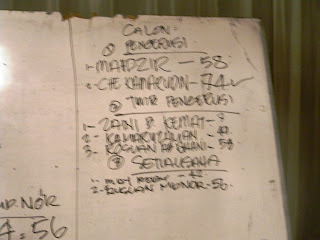 CALON:
① PENGERUSI
1- MAHDZIR - 58
2- CHE KAMARUDIN - 74 ✓
② TIMB PENGERUSI
1- ZAINI B KEMAT - 9
2- KAMARUZAMAN - 42
3- ROSLAN AB GHANI - 54
③ SETIAUSAHA
1- - 42
2- RUSLIAN MD NOR - 56
MD. NOR
4. 56